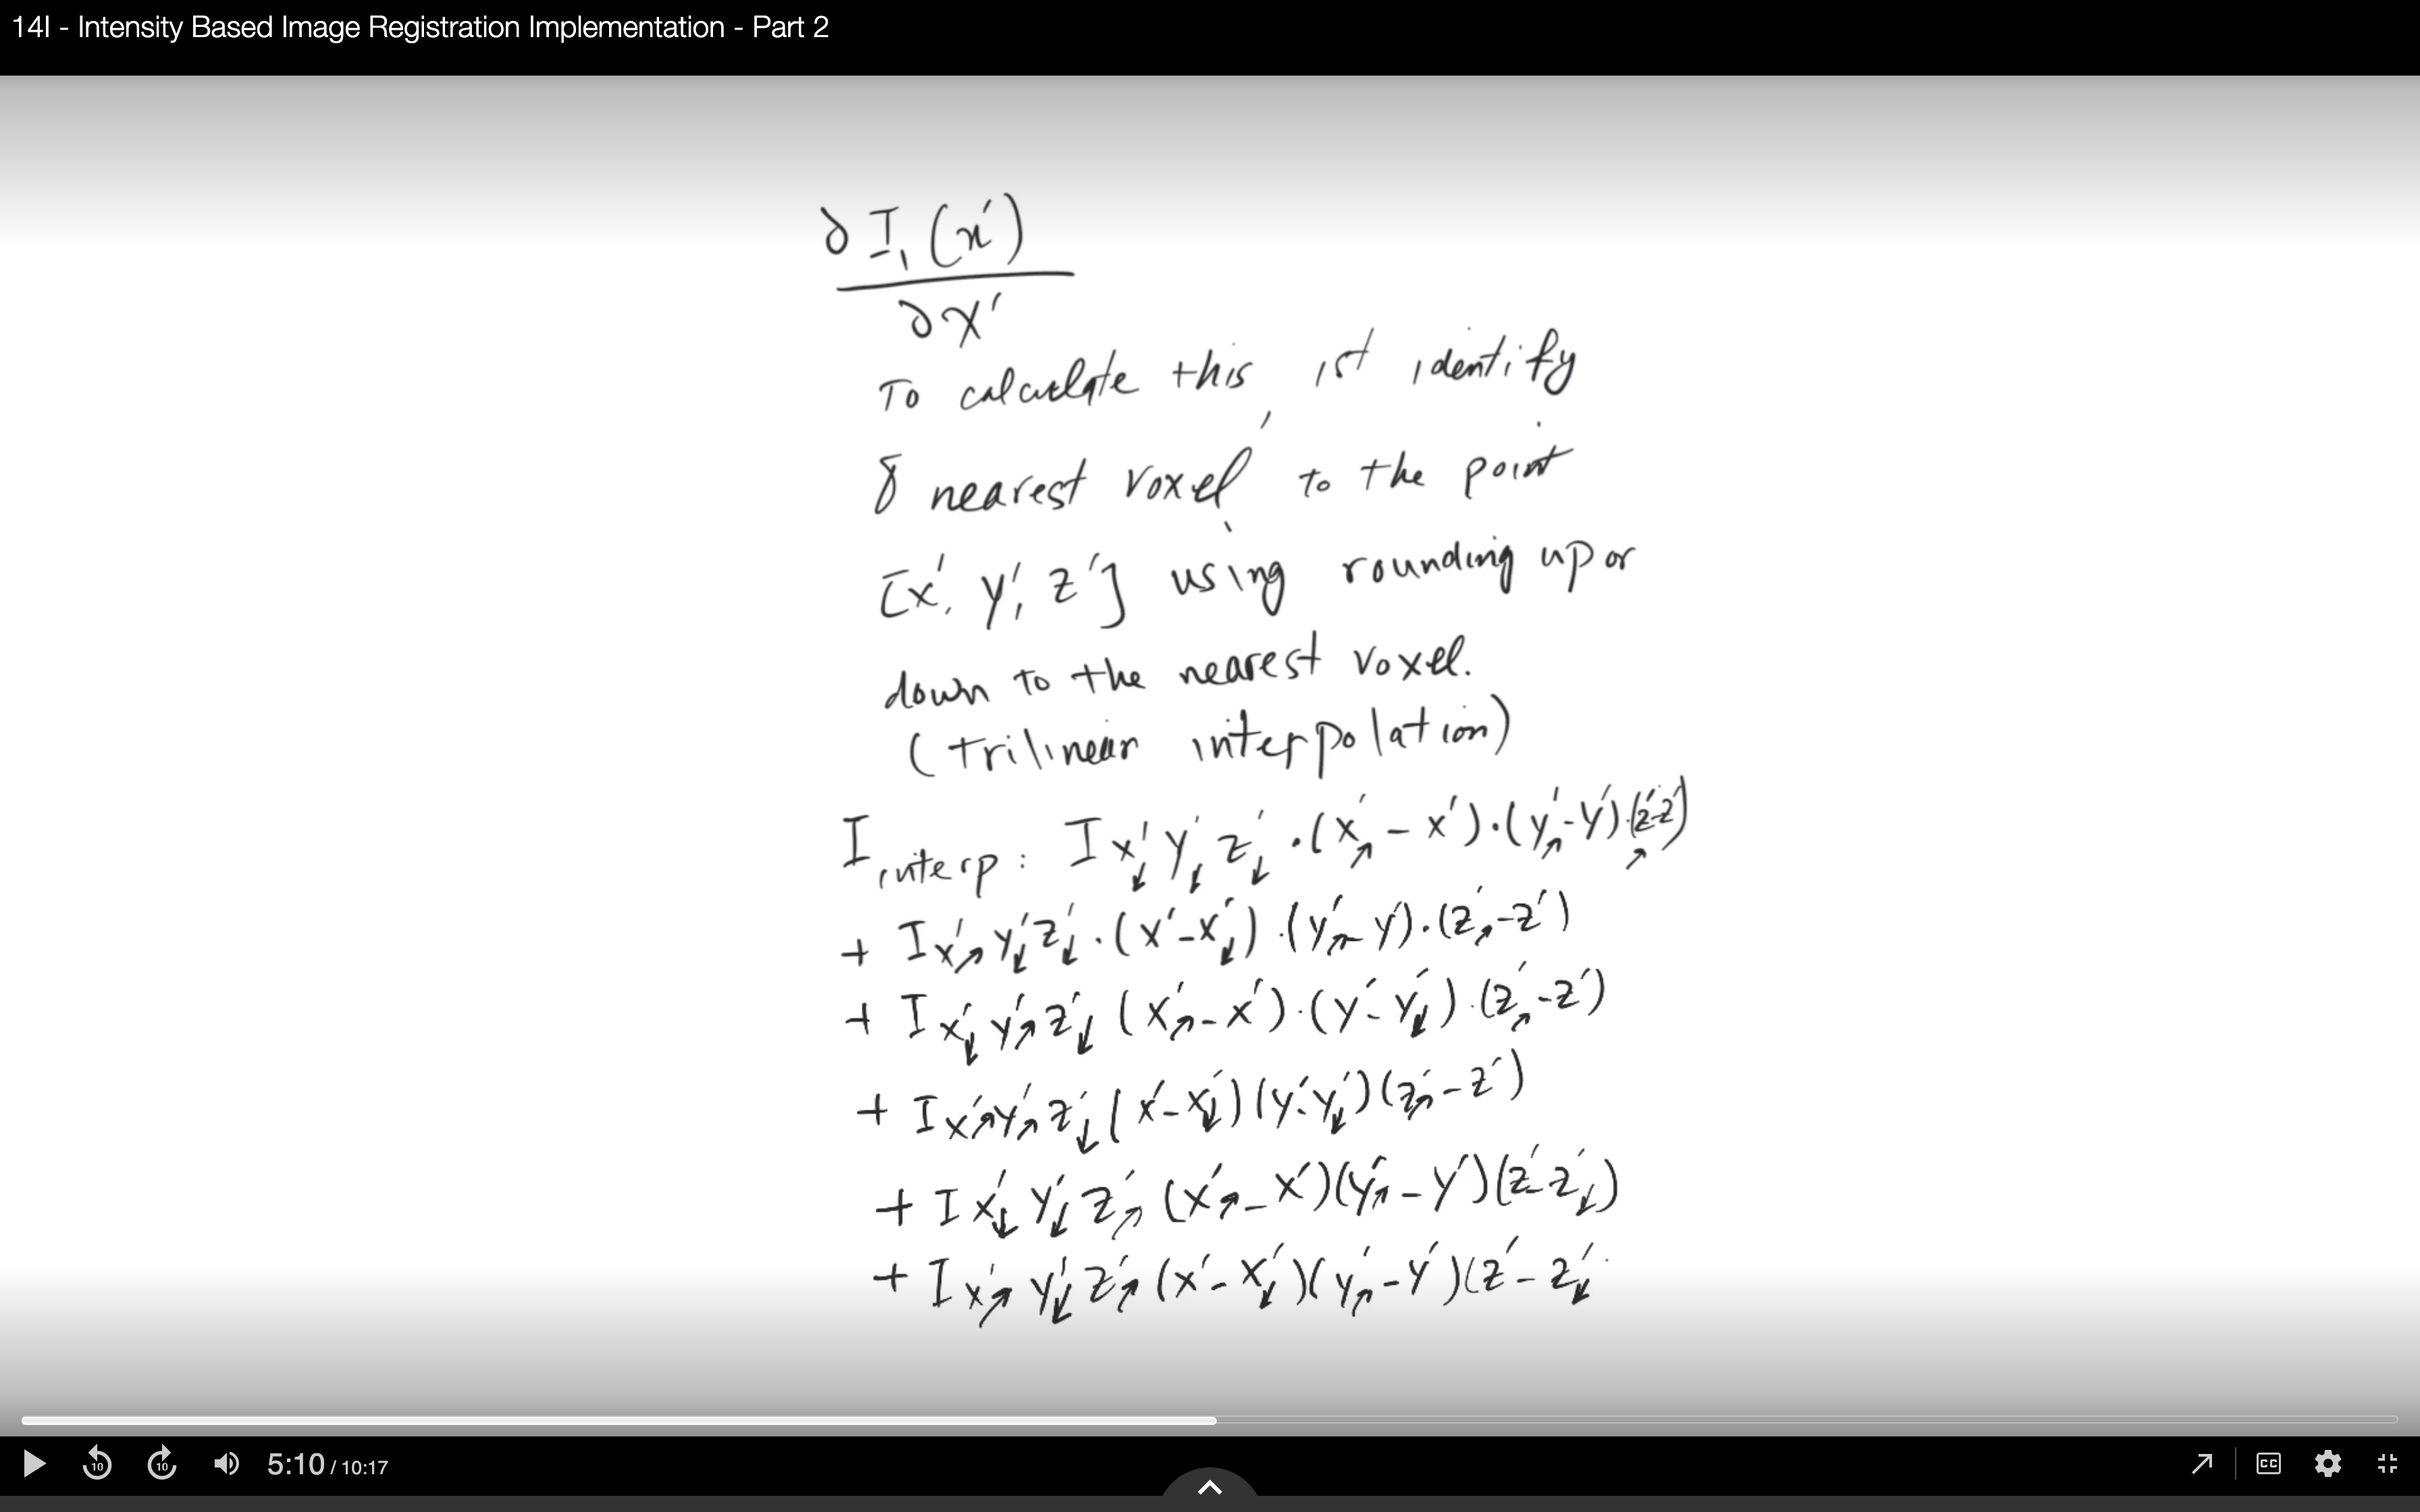 14I - Intensity Based Image Registration Implementation - Part 2
∂I₁(x′)
∂x′
To calculate this, 1st identify
8 nearest voxel to the point
[x′, y′, z′] using rounding up or
down to the nearest voxel.
(trilinear interpolation)
I interp: I x′↓ y′↓ z′↓ · (x′↗ - x′) · (y′↗ - y′) · (z′↗ - z′)
+ I x′↗ y′↓ z′↓ · (x′ - x′↓) · (y′↗ - y′) · (z′↗ - z′)
+ I x′↓ y′↗ z′↓ (x′↗ - x′) · (y′ - y′↓) · (z′↗ - z′)
+ I x′↗ y′↗ z′↓ (x′ - x′↓) (y′ - y′↓) (z′↗ - z′)
+ I x′↓ y′↓ z′↗ (x′↗ - x′) (y′↗ - y′) (z′ - z′↓)
+ I x′↗ y′↓ z′↗ (x′ - x′↓) (y′↗ - y′) (z′ - z′↓
10 10 5:10 / 10:17 CC